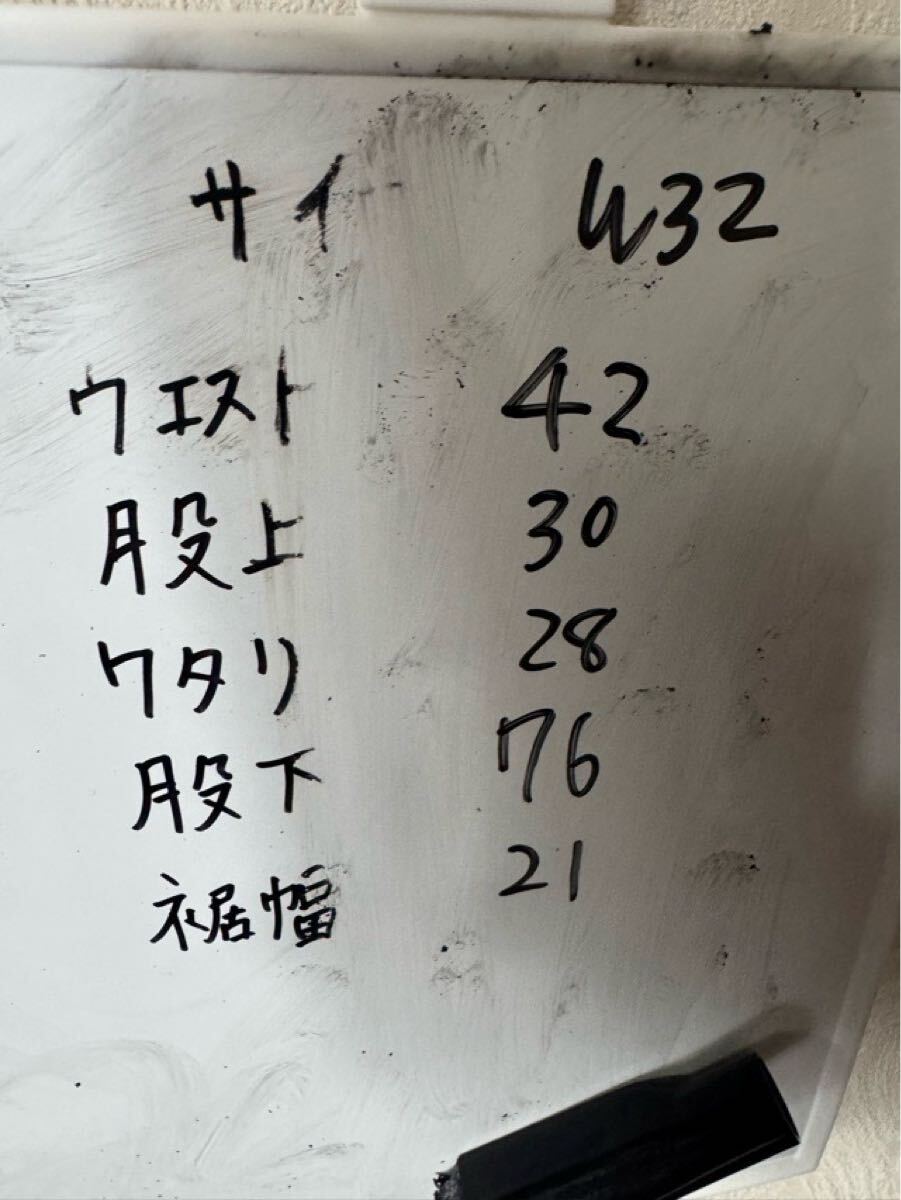 サイ W32
ウエスト 42
股上 30
ワタリ 28
股下 76
裾幅 21